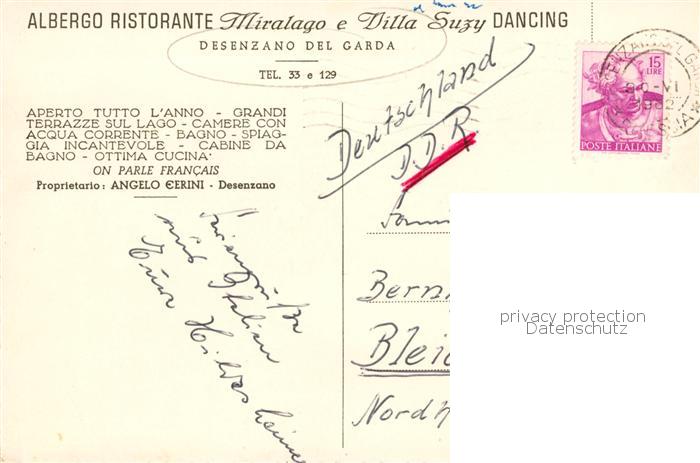 ALBERGO RISTORANTE Miralago e Villa Suzy DANCING
DESENZANO DEL GARDA
TEL. 33 e 129
APERTO TUTTO L'ANNO - GRANDI
TERRAZZE SUL LAGO - CAMERE CON
ACQUA CORRENTE - BAGNO - SPIAG-
GIA INCANTEVOLE - CABINE DA
BAGNO - OTTIMA CUCINA
ON PARLE FRANÇAIS
Proprietario: ANGELO CERINI - Desenzano
Feriengrüße
aus Italien
Eure Hildesheimer
15
LIRE
POSTE ITALIANE
Deutschland
D.D.R.
Fam
Bern
Blei
Nordh
privacy protection
Datenschutz